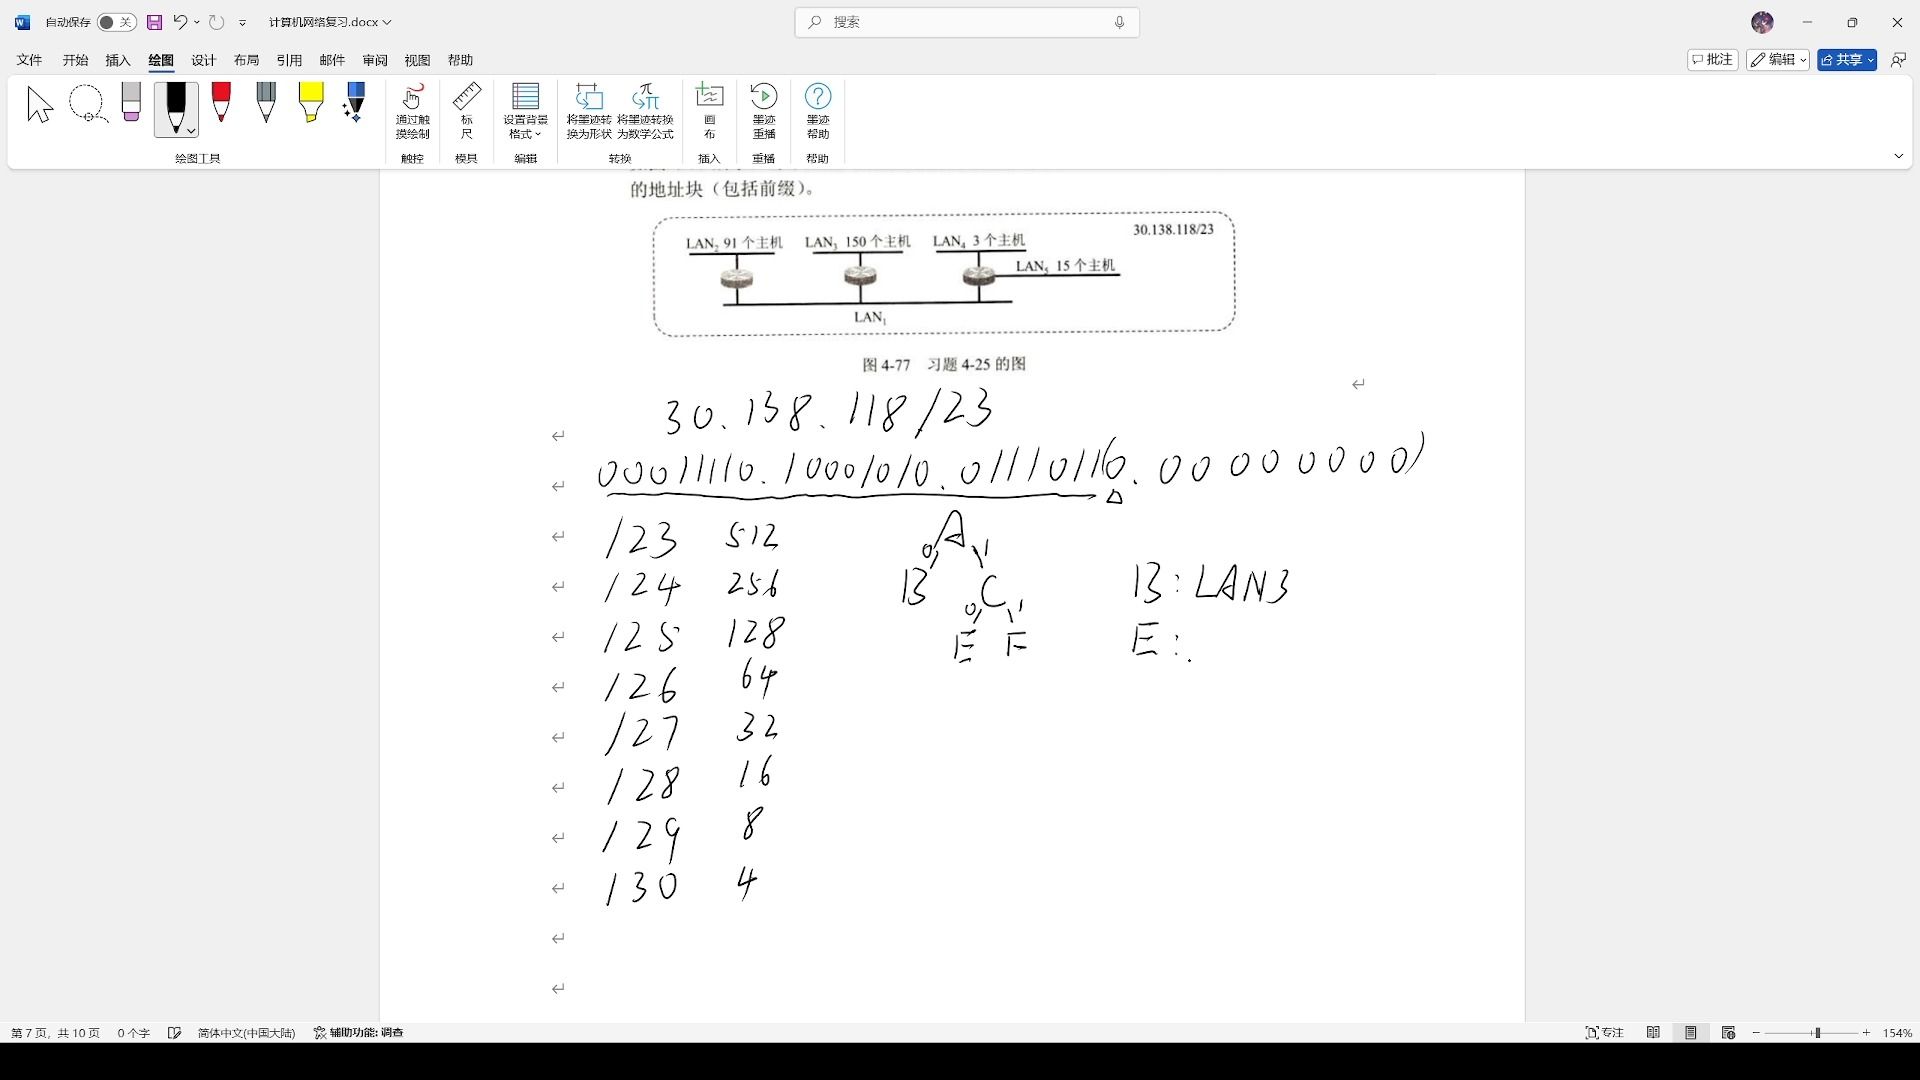 自动保存 关 计算机网络复习.docx 搜索
文件 开始 插入 绘图 设计 布局 引用 邮件 审阅 视图 帮助 批注 编辑 共享
通过触摸绘制 标尺 设置背景格式 将墨迹转换为形状 将墨迹转换为数学公式 画布 墨迹重播 墨迹帮助
绘图工具 触控 模具 编辑 转换 插入 重播 帮助
的地址块（包括前缀）。
30.138.118/23
LAN₂ 91 个主机 LAN₃ 150 个主机 LAN₄ 3 个主机
LAN₅ 15 个主机
LAN₁
图 4-77 习题 4-25 的图
30.138.118/23
00011110.10001010.0111011(0.00000000)
/23 512
/24 256
/25 128
/26 64
/27 32
/28 16
/29 8
/30 4
A
0 1
B C
0 1
E F
B:LAN3
E:
第 7 页，共 10 页 0 个字 简体中文(中国大陆) 辅助功能: 调查 专注 154%